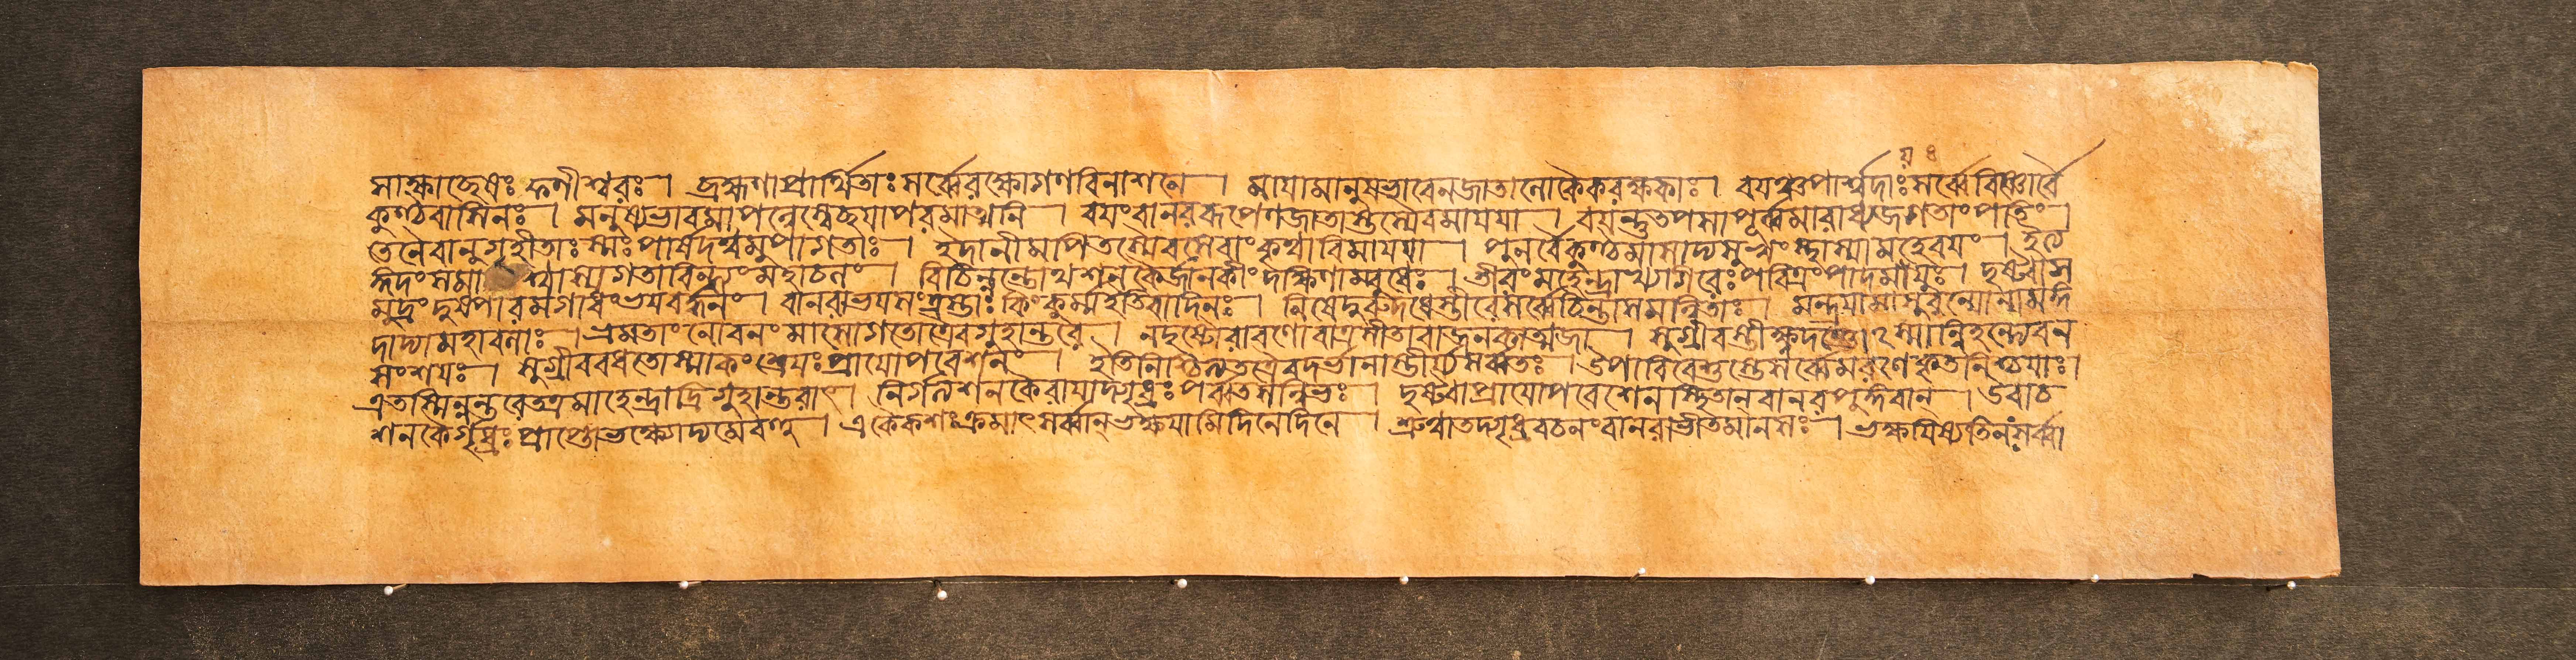 সাক্ষাচ্ছেষঃ ফণীশ্বরঃ। ব্রহ্মণাপ্রার্থিতাঃসর্ব্বেরক্ষোগণবিনাশনে। মায়ামানুষভাবেনজাতালোকৈকরক্ষকাঃ। বয়ঞ্চপার্শ্বদাঃসর্ব্বেবিষ্ণোর্বৈ
কুণ্ঠবাসিনঃ। মনুষ্যভাবমাপন্নেস্বেচ্ছয়াপরমাত্মনি। বয়ংবানররূপেণজাতাস্তস্যৈবমায়য়া। বয়ন্তুতপসাপূর্ব্বমারাধ্যজগতাংপতিং।
তেনৈবানুগৃহীতাঃস্মঃপার্ষদত্বমুপাগতাঃ। ইদানীমপিতস্যৈবসেবাংকৃত্বাবিমায়য়া। পুনর্বৈকুণ্ঠমাসাদ্যসুখংস্থাস্যামহেবয়ং। ইত্য
ঙ্গদংসমা শ্বাস্যগতাবিন্ধ্যংমহাচলং। বিচিন্বন্তোথশনকৈর্জানকীংদক্ষিণাম্বুধেঃ। তীরংমহেন্দ্রাখ্যগিরেঃপবিত্রংপাদমাযয়ুঃ। দৃষ্ট্বাস
মুদ্রংদুষ্পারমগাধংভয়বর্দ্ধনং। বানরাভয়সংত্রস্তাঃকিংকুর্ম্মইতিবাদিনঃ। নিষেদুরুদধেস্তীরেসর্ব্বেচিন্তাসমন্বিতাঃ। মন্ত্রয়ামাসুরন্যোন্যমঙ্গ
দাদ্যামহাবলাঃ। ভ্রমতাংনোবনংমাসোগতোত্রৈবগুহান্তরে। নদৃষ্টোরাবণোবাত্রসীতাবাজনকাত্মজা। সুগ্রীবস্তীক্ষ্ণদণ্ডোঽস্মান্নিহন্ত্যেবন
সংশয়ঃ। সুগ্রীববধতোস্মাকংশ্রেয়ঃপ্রায়োপবেশনং। ইতিনিশ্চিত্যতত্রৈবদর্ভানাস্তীর্য্যসর্ব্বতঃ। উপাবিবেশুস্তেসর্ব্বেমরণেকৃতনিশ্চয়াঃ।
এতস্মিন্নন্তরেতত্রমাহেন্দ্রাদ্রিগুহান্তরাৎ। নির্গত্যশনকৈরায়াদ্গৃধ্রঃপর্ব্বতসন্নিভঃ। দৃষ্ট্বাপ্রায়োপবেশেনস্থিতান্বানরপুঙ্গবান্। উবাচ
শনকৈর্গৃধ্রঃপ্রাপ্তোভক্ষ্যোদ্যমেবহু। একৈকশঃক্রমাৎসর্ব্বান্ভক্ষয়ামিদিনেদিনে। শ্রুত্বাতদ্গৃধ্রবচনংবানরাভীতমানসাঃ। ভক্ষয়িষ্যতিনঃসর্ব্বা